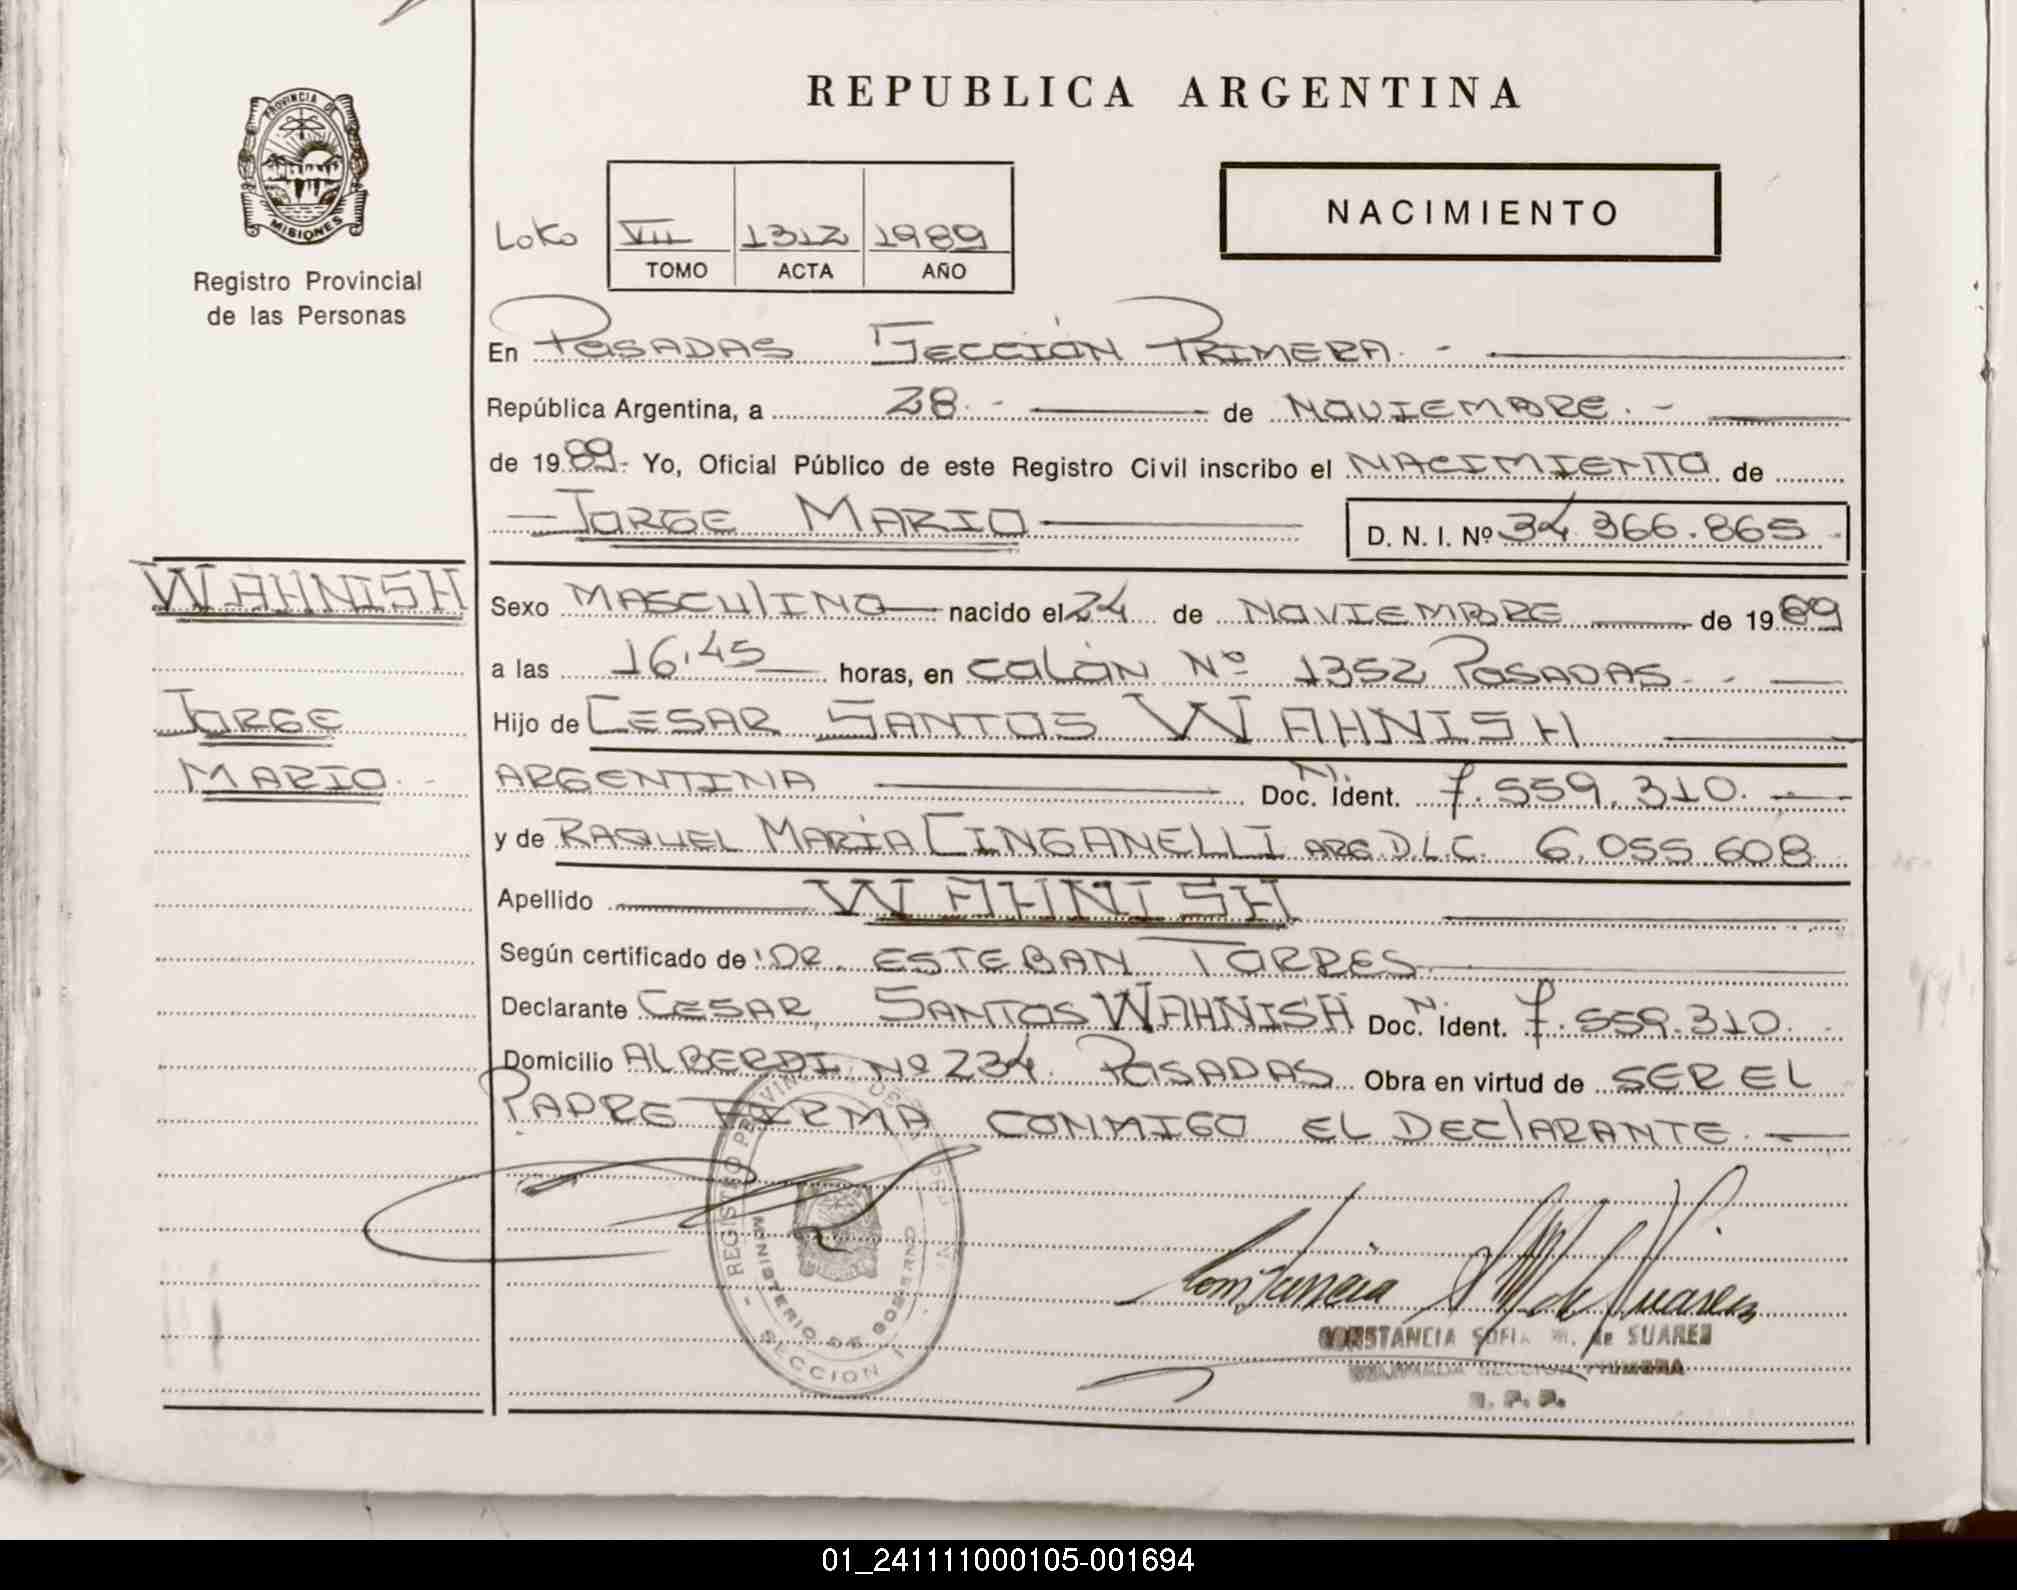 REPUBLICA ARGENTINA
PROVINCIA DE
MISIONES
Registro Provincial
de las Personas
NACIMIENTO
VII 1312 1989
TOMO ACTA AÑO
En POSADAS SECCIÓN PRIMERA.-
República Argentina, a 28.- de NOVIEMBRE.-
de 1989.- Yo, Oficial Público de este Registro Civil inscribo el NACIMIENTO de
JORGE MARIO
D. N. I. Nº 34.366.865
WAHNISH
JORGE
MARIO.-
Sexo MASCULINO nacido el 24 de NOVIEMBRE de 1989
a las 16.45 horas, en COLÓN Nº 1352 POSADAS.-
Hijo de CESAR SANTOS WAHNISH
ARGENTINA Doc. N. Ident. 7.559.310.
y de RAQUEL MARÍA CINGANELLI ARG. D.L.C. 6.055.608
Apellido WAHNISH
Según certificado de: DR. ESTEBAN TORRES
Declarante CESAR SANTOS WAHNISH Doc. N. Ident. 7.559.310.
Domicilio ALBERDI Nº 234. POSADAS Obra en virtud de SER EL
PADRE FIRMA CONMIGO EL DECLARANTE.
REGISTRO
MINISTERIO DE GOBIERNO
SECCION 1
Constancia S M de Suarez
CONSTANCIA SOFIA M. de SUAREZ
SECCION PRIMERA
R. P. P.
01_241111000105-001694